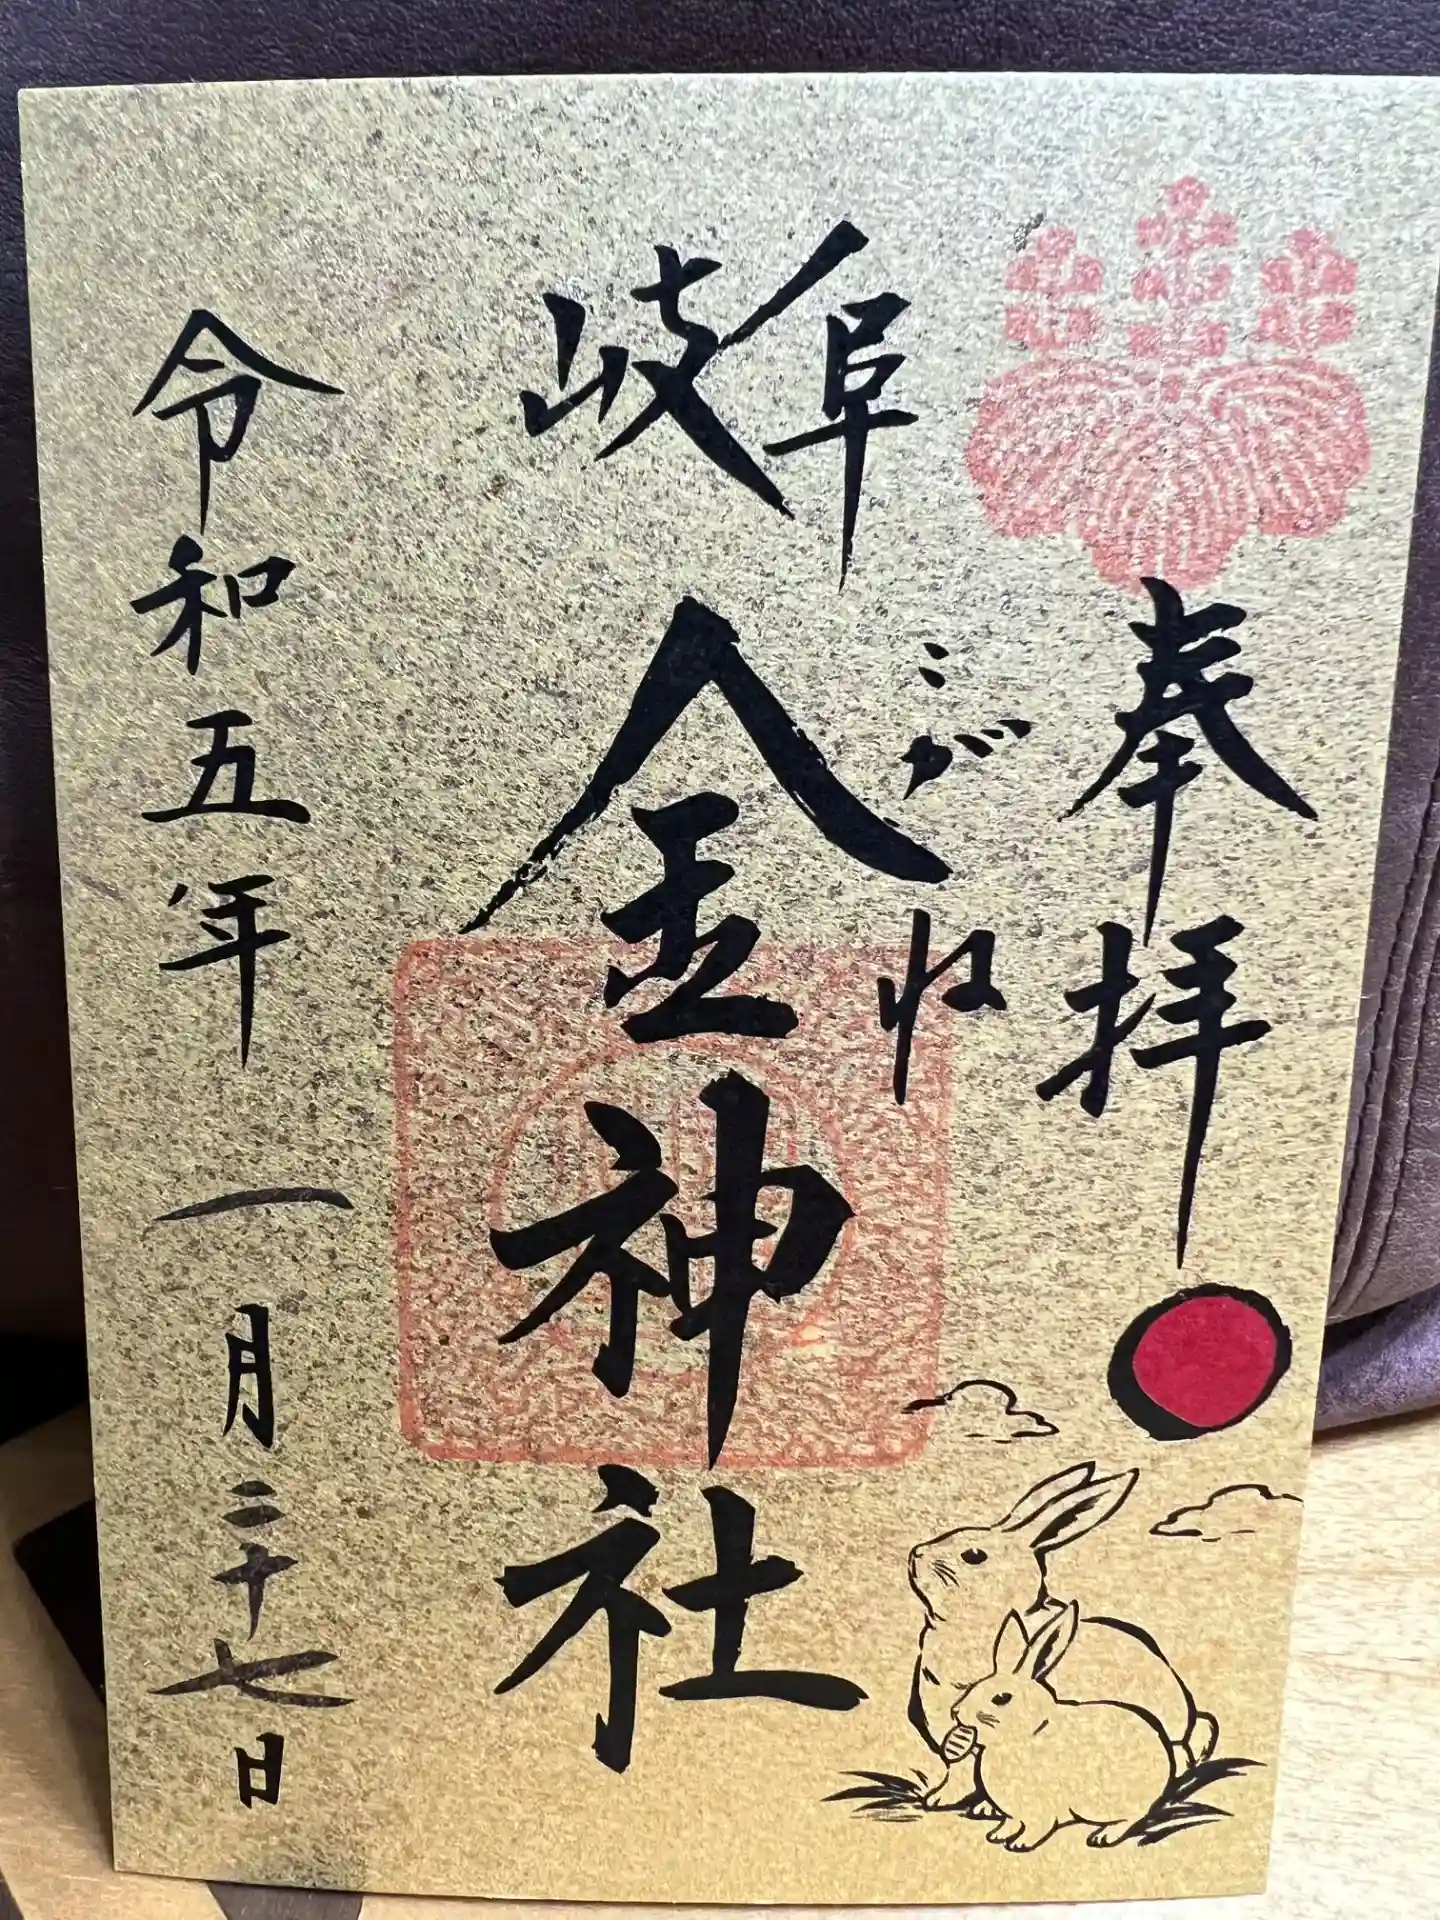 奉拝
岐阜
こがね
金神社
令和五年一月二十七日